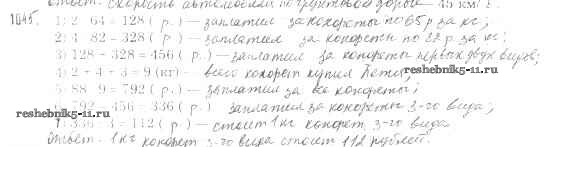 Ответ: скорость автомобиля по грунтовой дороге 45 км/
1045. 1) 2 · 64 = 128 ( р. ) — заплатил за конфеты по 65 р за кг ;
2) 4 · 82 = 328 ( р. ) — заплатил за конфеты по 82 р. за кг ;
3) 128 + 328 = 456 ( р. ) — заплатил за конфеты первых двух видов;
4) 2 + 4 + 3 = 9 (кг) — всего конфет купил Петя;
5) 88 · 9 = 792 ( р. ) — заплатил за все конфеты;
reshebnik5-11.ru
6) 792 - 456 = 336 ( р. ) заплатил за конфеты 3-го вида;
reshebnik5-11.ru
7) 336 : 3 = 112 ( р. ) — стоит 1 кг конфет 3-го вида
Ответ: 1 кг конфет 3-го вида стоит 112 рублей.